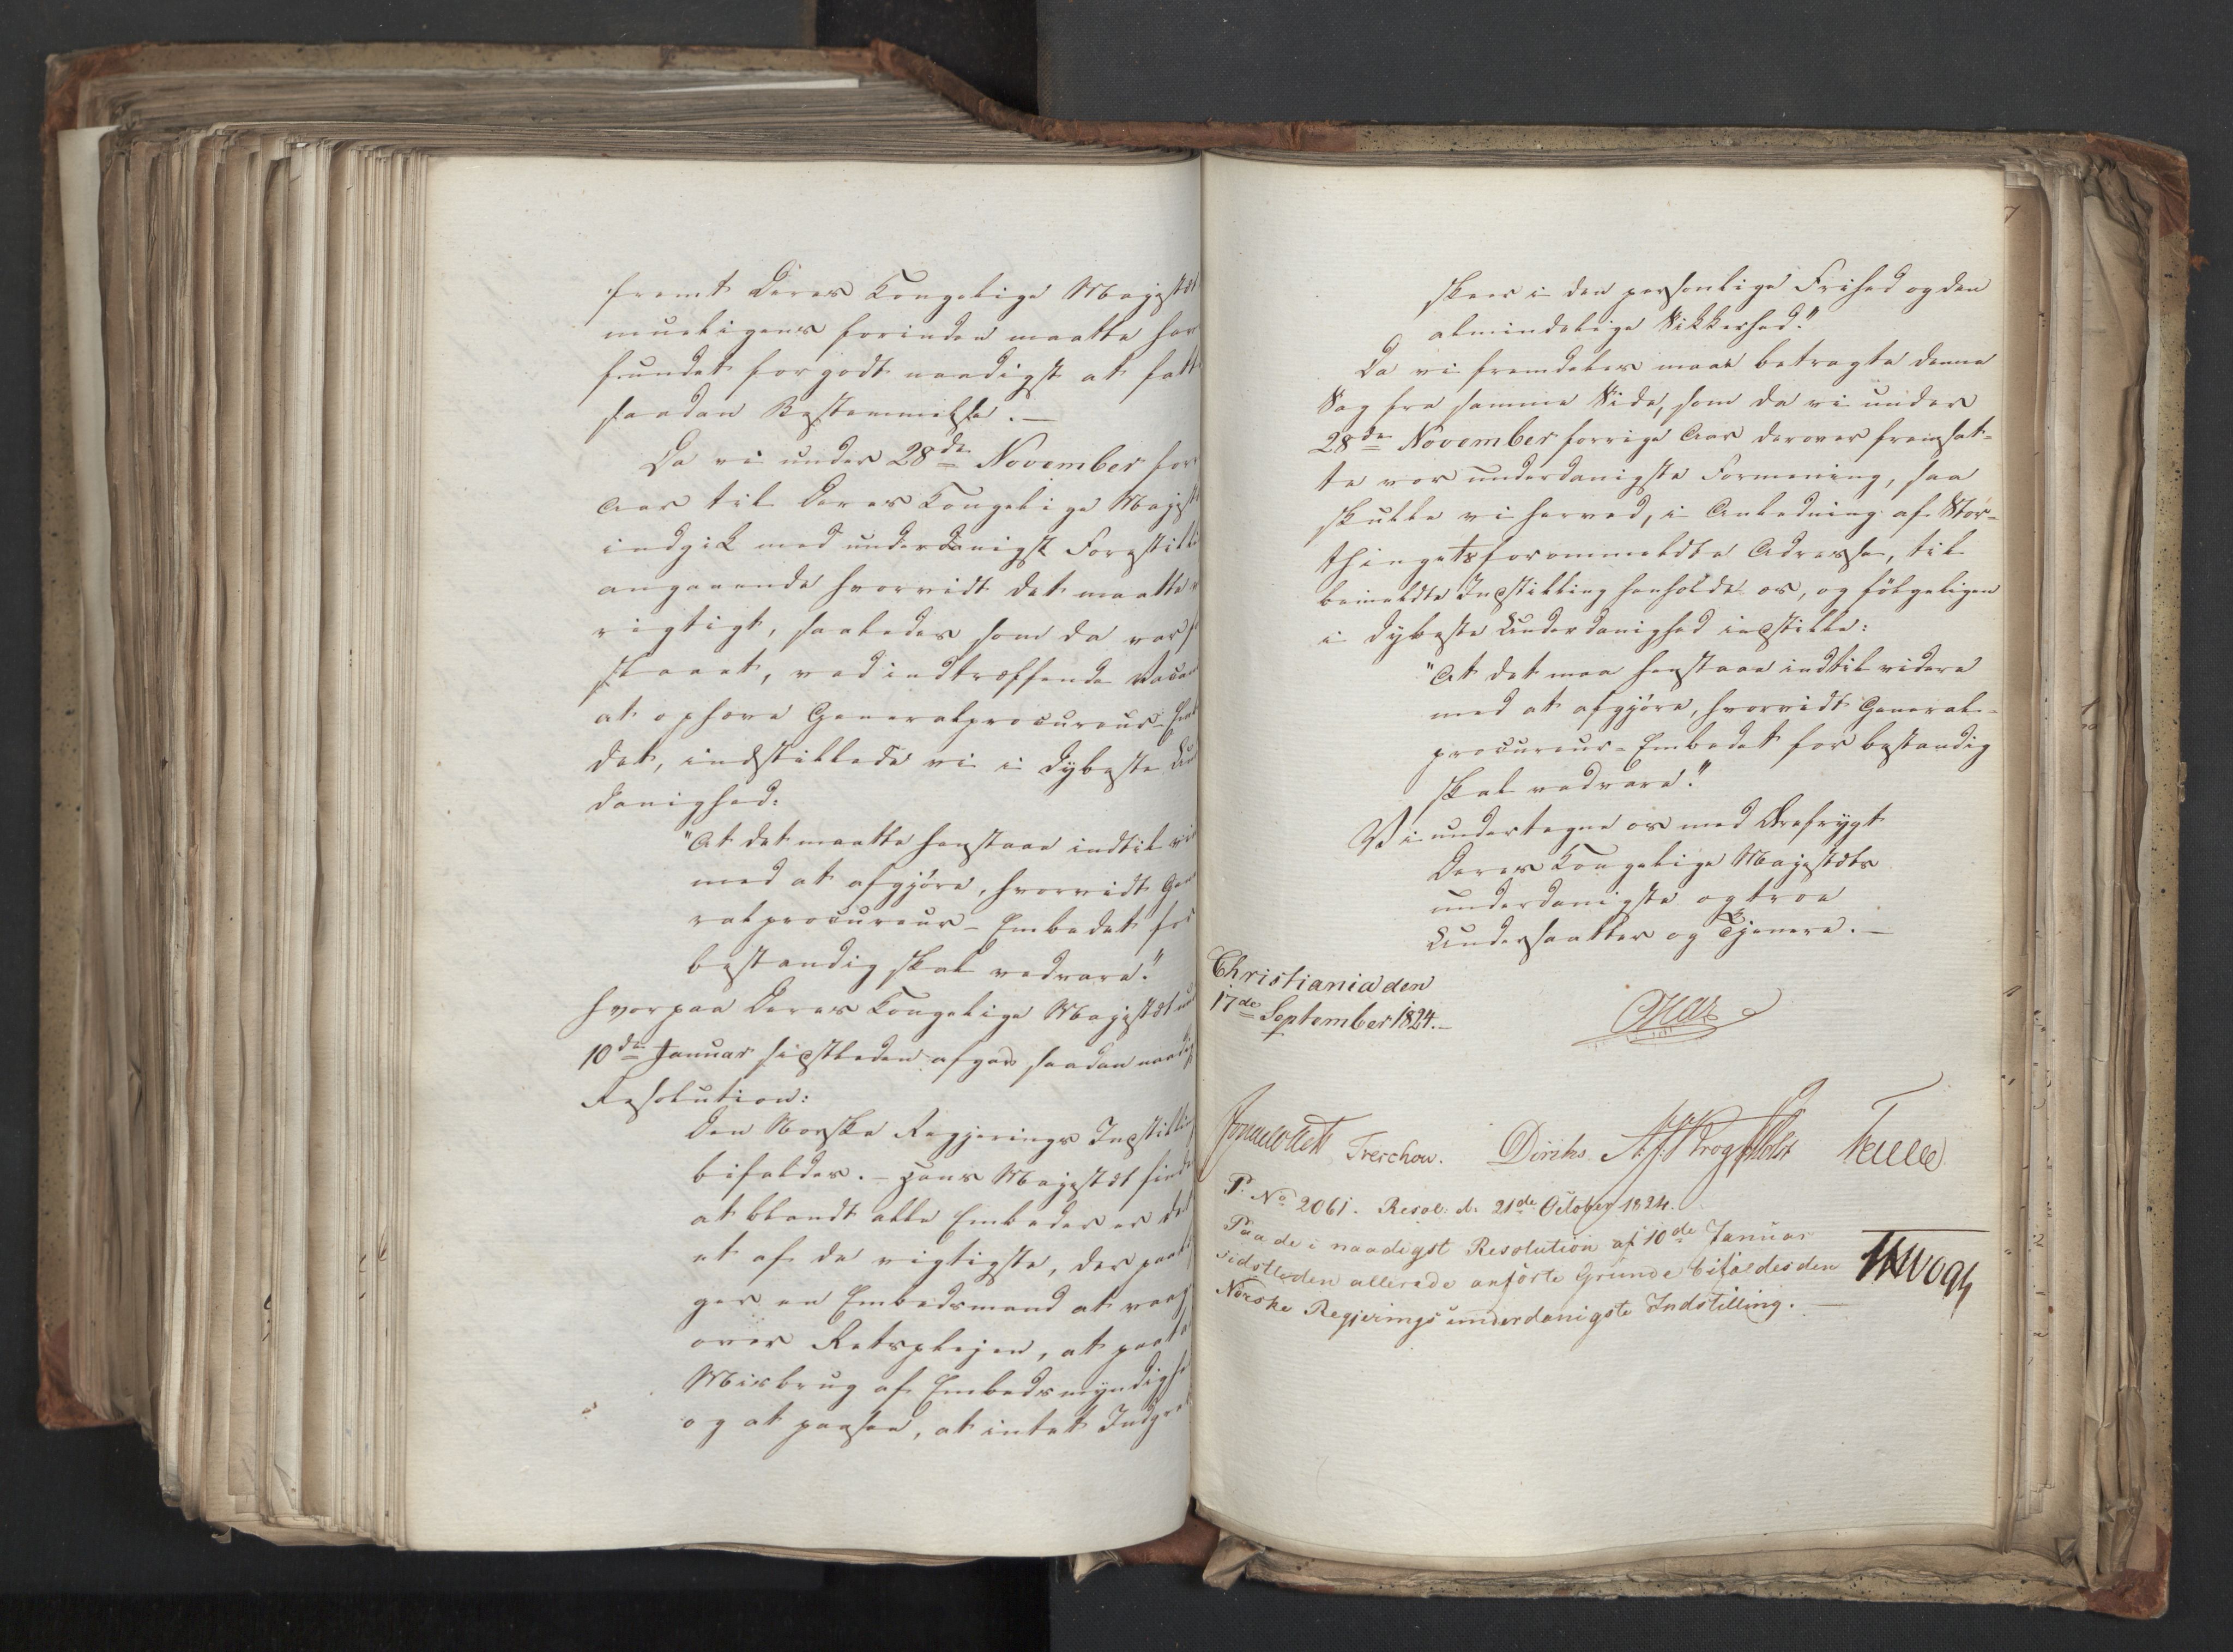 fremt Deres Kongelige Majestæt
mueligens forinden maatte hav
fundet forgodt naadigst at fatt
saadan Bestemmelse. —
Da vi under 28de November for
Aar til Deres Kongelige Majest
indgik med underdanigst Forestilli
angaaende hvorvidt det maatte v
rigtigt, saaledes som da var
skeet, ved indtræffende Vacan
at ophæve Generalprocureur-Em
det, indstillede vi i dybeste Un
danighed:
"At det maatte henstaae indtil vi
med at afgjöre, hvorvidt Gene
ralprocureur-Embedet for
bestandig skal vedvare."
hvorpaa Deres Kongelige Majestæt un
10de Januar sidstleden afgav saadan naadig
Resolution:
Den Norske Regjerings Indstilling
bifaldes. – Hans Majestæt find
at blandt alle Embeder er det
et af de vigtigste, der paal
ger en Embedsmand at vaag
over Retsplejen, at paat
Misbrug af Embedsmyndigh
og at paasee, at intet Indgre
skeer i den personlige Frihed og den
almindelige Sikkerhed."
Da vi fremdeles maae betragte denne
Sag fra samme Side, som da vi under
28de November forrige Aar derover fremsat=
te vor underdanigste Formening, saa
skulle vi herved, i Anledning af Stor=
thingets forommeldte Adresse, til
bemeldte Indstilling henholde os, og fölgeligen
i dybeste Underdanighed indstille:
"At det maa henstaae indtil videre
med at afgjöre, hvorvidt General=
procureur=Embedet for bestandig
skal vedvare."
Vi undertegne os med Ærefrygt
Deres Kongelige Majestæts
underdanigste og troe
Undersaatter og Tjenere. —
Christiania den
17de September 1824. —
Sommerhielm Treschow. Diriks A. J. Krog Holst
P. No 2061. Resol: d. 21de October 1824.
Paa de i naadigst Resolution af 10de Januar
sidstleden allerede anförte Grunde bifaldes den
Norske Regjerings underdanigste Indstilling. —
JHVogt